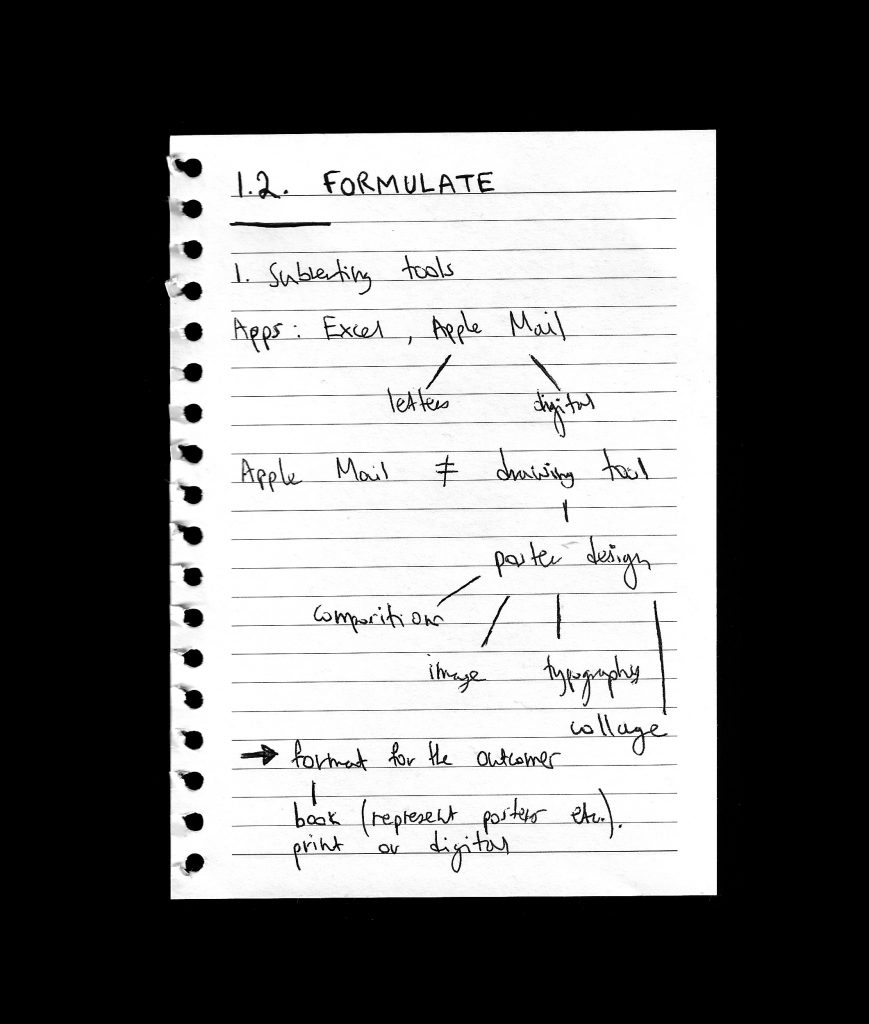 1.2. FORMULATE
1. Subverting tools
Apps: Excel, Apple Mail
letters digital
Apple Mail ≠ drawing tool
poster design
composition
image typography
collage
→ format for the outcomes
book (represent posters etc.).
print or digital